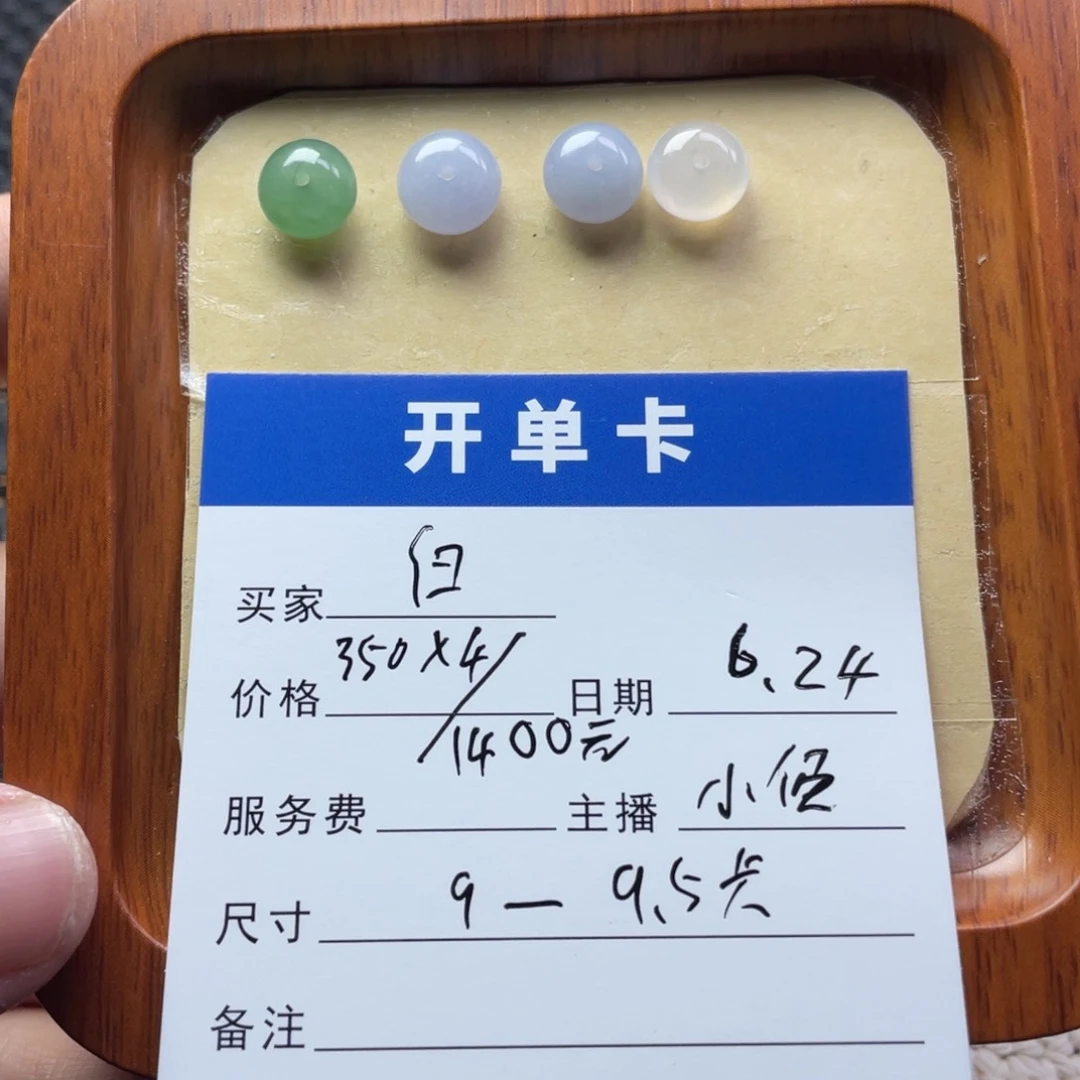 开单卡
买家 白
价格 350×4/1400元 日期 6.24
服务费 主播 小伍
尺寸 9—9.5
备注